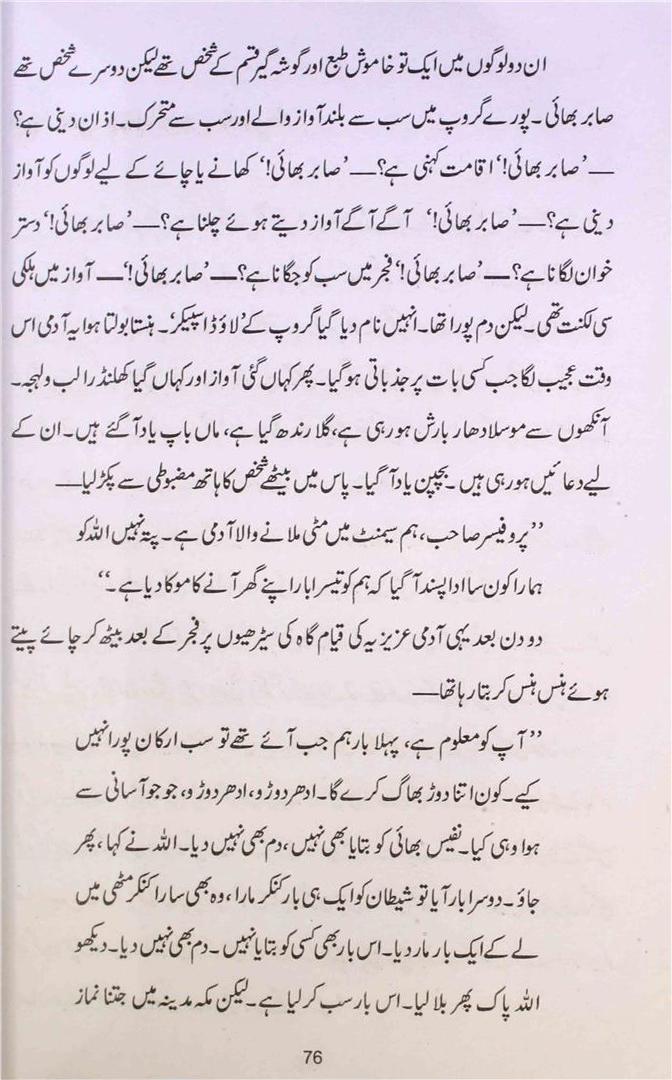 ان دو لوگوں میں ایک تو خاموش طبع اور گوشہ گیر قسم کے شخص تھے لیکن دوسرے شخص تھے
صابر بھائی۔ پورے گروپ میں سب سے بلند آواز والے اور سب سے متحرک۔ اذان دینی ہے؟
—’صابر بھائی!‘ اقامت کہنی ہے؟—’صابر بھائی!‘ کھانے یا چائے کے لیے لوگوں کو آواز
دینی ہے؟—’صابر بھائی!‘ آگے آگے آواز دیتے ہوئے چلنا ہے؟—’صابر بھائی!‘ دستر
خوان لگانا ہے؟—’صابر بھائی!‘ فجر میں سب کو جگانا ہے؟—’صابر بھائی!‘— آواز میں ہلکی
سی لکنت تھی۔ لیکن دم پورا تھا۔ انہیں نام دیا گیا گروپ کے ’لاؤڈ اسپیکر‘۔ ہنستا بولتا ہوا یہ آدمی اس
وقت عجیب لگا جب کسی بات پر جذباتی ہو گیا۔ پھر کہاں گئی آواز اور کہاں گیا کھلنڈرا لب ولہجہ۔
آنکھوں سے موسلا دھار بارش ہو رہی ہے، گلا رندھ گیا ہے، ماں باپ یاد آ گئے ہیں۔ ان کے
لیے دعائیں ہو رہی ہیں۔ بچپن یاد آ گیا۔ پاس میں بیٹھے شخص کا ہاتھ مضبوطی سے پکڑ لیا—
’’پروفیسر صاحب، ہم سیمنٹ میں مٹی ملانے والا آدمی ہے۔ پتہ نہیں اللہ کو
ہمارا کون سا ادا پسند آ گیا کہ ہم کو تیسرا بار اپنے گھر آنے کا موکا دیا ہے۔‘‘
دو دن بعد یہی آدمی عزیزیہ کی قیام گاہ کی سیڑھیوں پر فجر کے بعد بیٹھ کر چائے پیتے
ہوئے ہنس ہنس کر بتا رہا تھا—
’’آپ کو معلوم ہے، پہلا بار ہم جب آئے تھے تو سب ارکان پورا نہیں
کیے۔ کون اتنا دوڑ بھاگ کرے گا۔ ادھر دوڑو، ادھر دوڑو، جو جو آسانی سے
ہوا وہی کیا۔ نفیس بھائی کو بتایا بھی نہیں، دم بھی نہیں دیا۔ اللہ نے کہا، پھر
جاؤ۔ دوسرا بار آیا تو شیطان کو ایک ہی بار کنکر مارا، وہ بھی سارا کنکر مٹھی میں
لے کے ایک بار مار دیا۔ اس بار بھی کسی کو بتایا نہیں۔ دم بھی نہیں دیا۔ دیکھو
اللہ پاک پھر بلا لیا۔ اس بار سب کر لیا ہے۔ لیکن مکہ مدینہ میں جتنا نماز
76